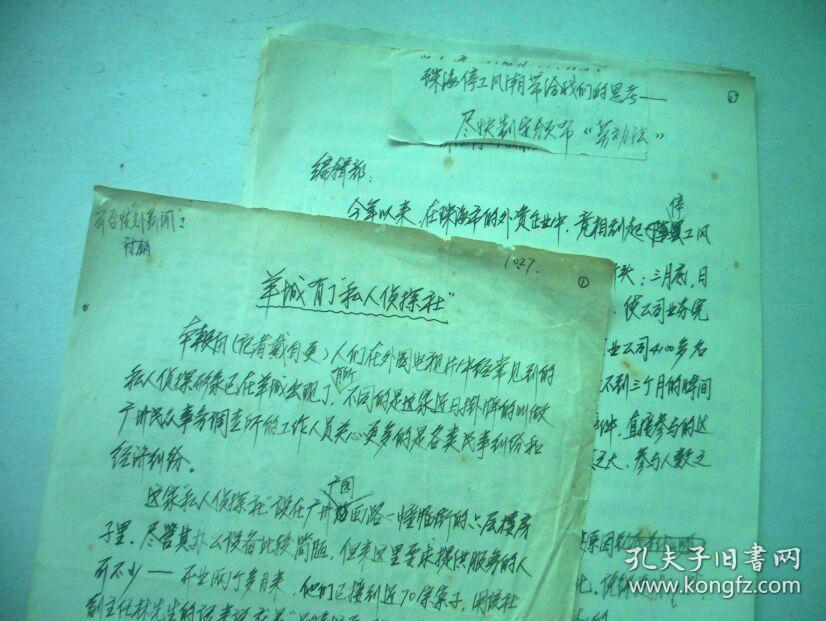 珠海停工风潮带给我们的思考——
尽快制定颁布“劳动法”
①
编辑部:
停
今年以来,在珠海市的外资企业中,竞相刮起工风
三月底,日
使公司业务
业公司4100多名
不到三个月的时间
件,直接参与的达
大,参与人数之
原因
1027.
①
羊城有了“私人侦探社”
本报讯(记者戴自更)人们在外国电视片中经常见到的
私人侦探形象已在羊城出现了,有所不同的是这家近日挂牌的叫做
广州民众事务调查所的工作人员关心更多的是各类民事纠纷和
经济纠纷。
广园
这家“私人侦探社”设在广州路一幢临街的六层楼房
子里,尽管其办公设备比较简陋,但来这里要求提供服务的人
可不少——开业两个多月来,他们已接到近70余案子,用该社
副主任林先生的话来说
孔夫子旧书网
www.kongfz.com